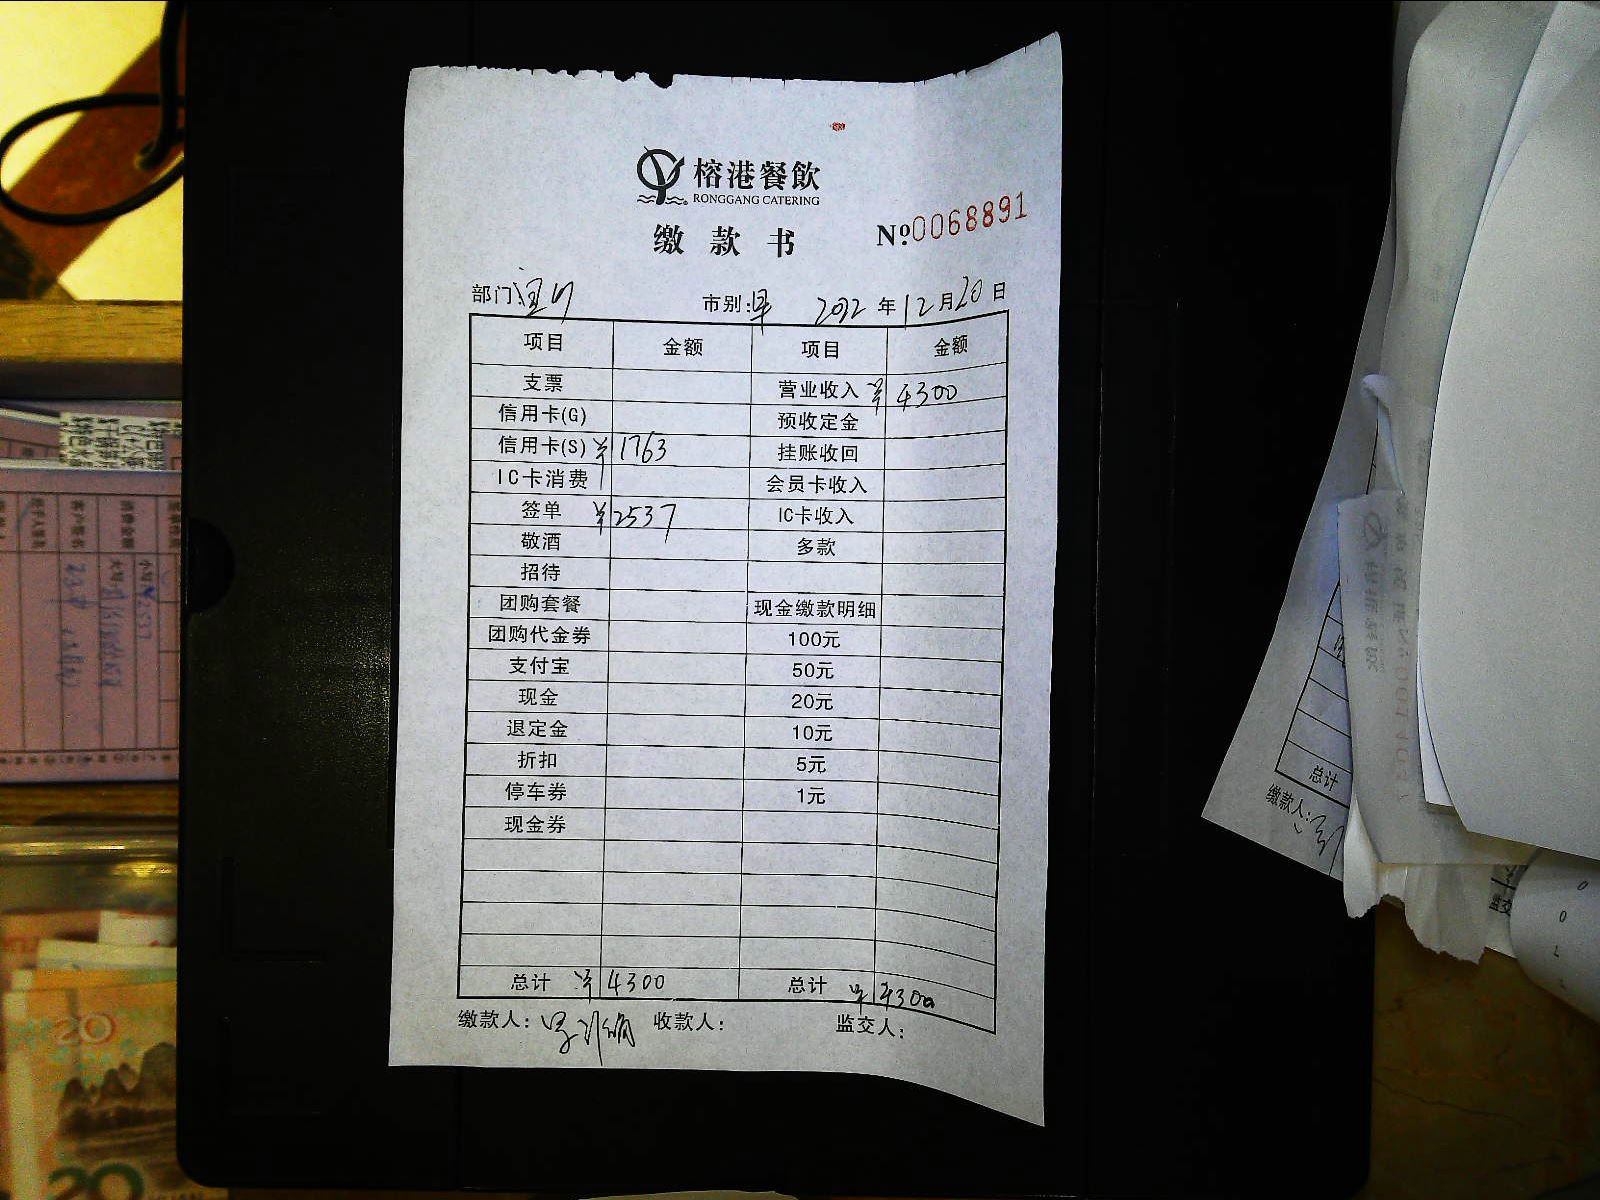 榕港餐飲
RONGGANG CATERING
缴款书
№0068891
部门: 市别: 2022年12月20日
项目 金额 项目 金额
支票 营业收入 ¥4300
信用卡(G) 预收定金
信用卡(S) ¥1763 挂账收回
IC卡消费 会员卡收入
签单 ¥2537 IC卡收入
敬酒 多款
招待
团购套餐 现金缴款明细
团购代金券 100元
支付宝 50元
现金 20元
退定金 10元
折扣 5元
停车券 1元
现金券
总计 ¥4300 总计 ¥4300
缴款人: 收款人: 监交人:
总计
缴款人:
监交
20
20